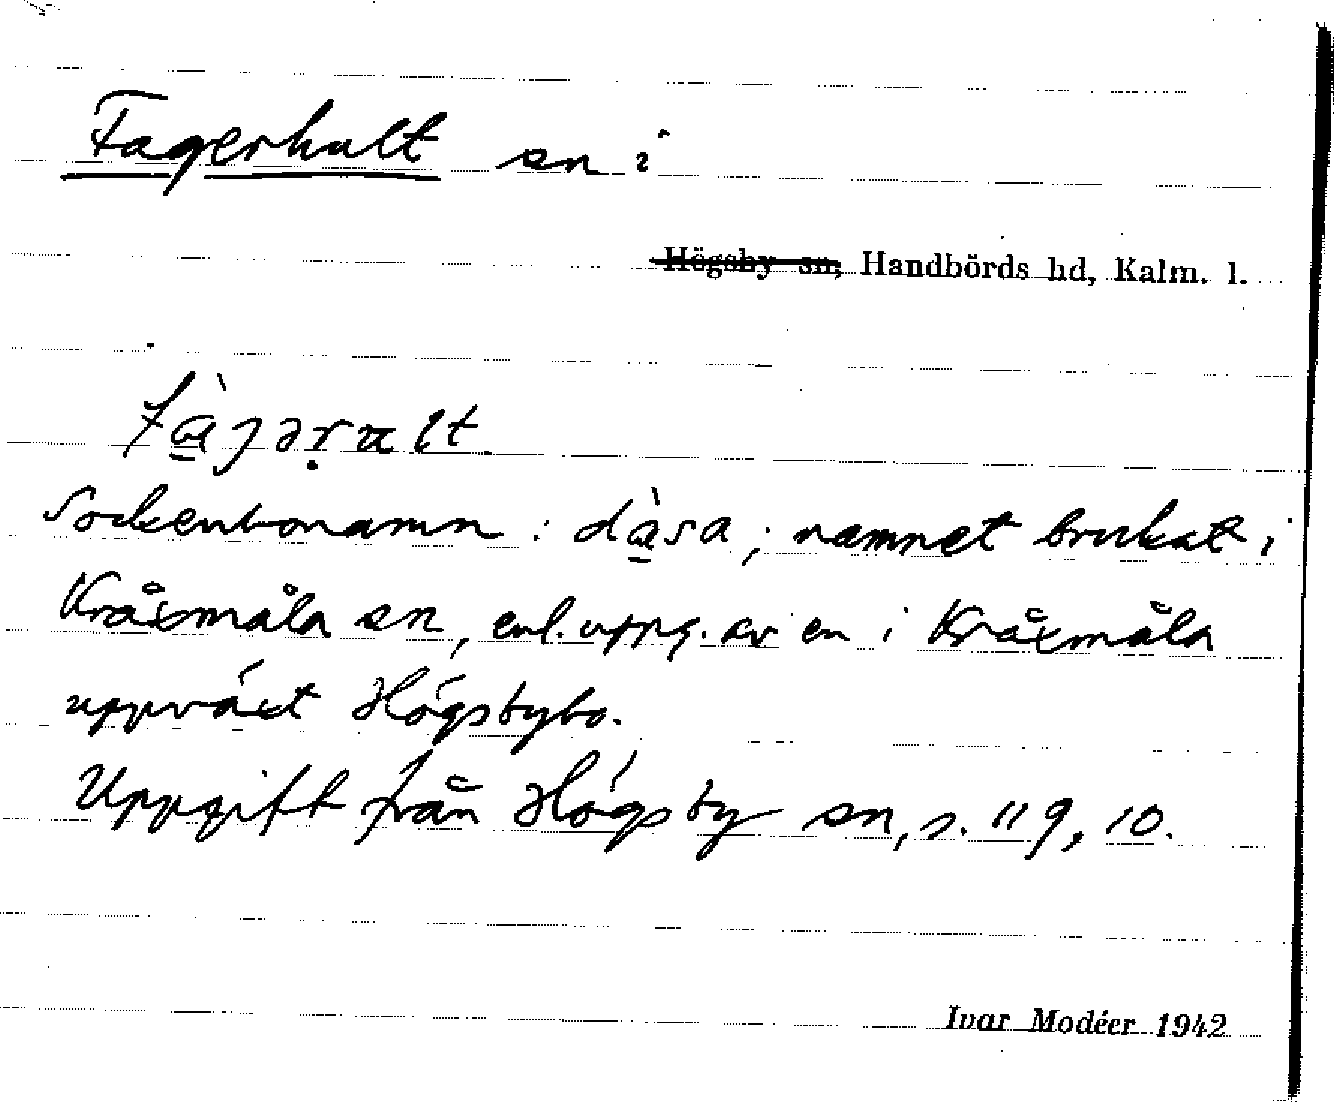 Fagerhult sn i
Högsby sn, Handbörds hd, Kalm. l.
fàjərult
Sockenbonamn: dàsa; namnet brukat i
Kråxmåla sn, enl. uppg. av en i Kråxmåla
uppväxt Högsbybo.
Uppgift från Högsby sn, s. 119, 10.
Ivar Modéer 1942